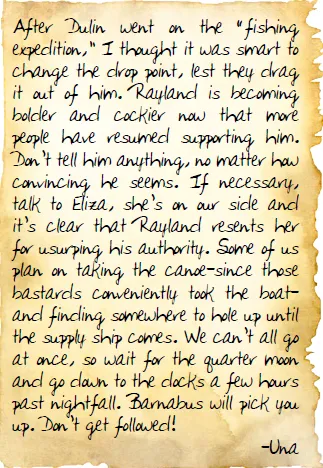 After Dulin went on the "fishing
expedition," I thought it was smart to
change the drop point, lest they drag
it out of him. Rayland is becoming
bolder and cockier now that more
people have resumed supporting him.
Don't tell him anything, no matter how
convincing he seems. If necessary,
talk to Eliza, she's on our side and
it's clear that Rayland resents her
for usurping his authority. Some of us
plan on taking the canoe-since those
bastards conveniently took the boat-
and finding somewhere to hole up until
the supply ship comes. We can't all go
at once, so wait for the quarter moon
and go down to the docks a few hours
past nightfall. Barnabus will pick you
up. Don't get followed!
-Una